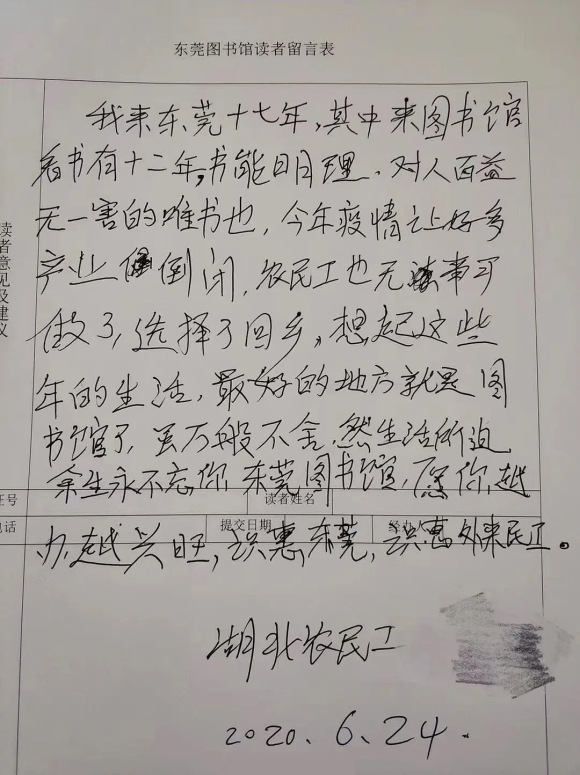 东莞图书馆读者留言表
我来东莞十七年，其中来图书馆
看书有十二年，书能明理、对人百益
无一害的唯书也，今年疫情让好多
产业倒闭，农民工也无事可
做了，选择了回乡，想起这些
年的生活，最好的地方就是图
书馆了，虽万般不舍，然生活所迫
余生永不忘你，东莞图书馆，愿你越
办越兴旺，识惠东莞，识惠外来民工。
湖北农民工
2020.6.24.
读者意见及建议
证号
读者姓名
电话
提交日期
经办人